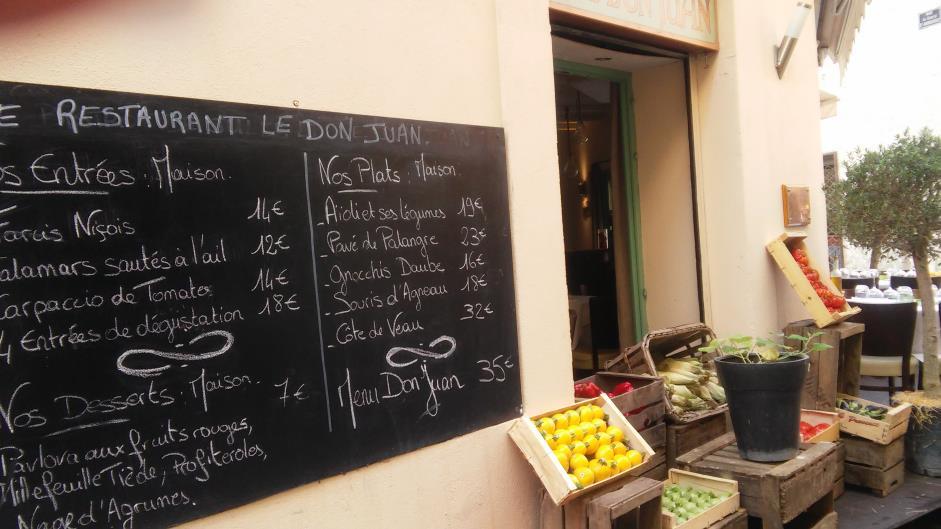 RESTAURANT LE DON JUAN.
Nos Entrées : Maison.
Farcis Niçois 14€
Calamars sautés à l'ail 12€
Carpaccio de Tomates 14€
4 Entrées de dégustation 18€
Nos Desserts : Maison. 7€
Pavlova aux fruits rouges,
Millefeuille Tiède, Profiteroles,
Nage d'Agrumes.
Nos Plats : Maison.
- Aïoli et ses légumes 19€
- Pavé de Palangre 23€
- Gnocchis Daube 16€
- Souris d'Agneau 18€
- Côte de Veau 32€
Menu Don Juan 35€
DON JUAN